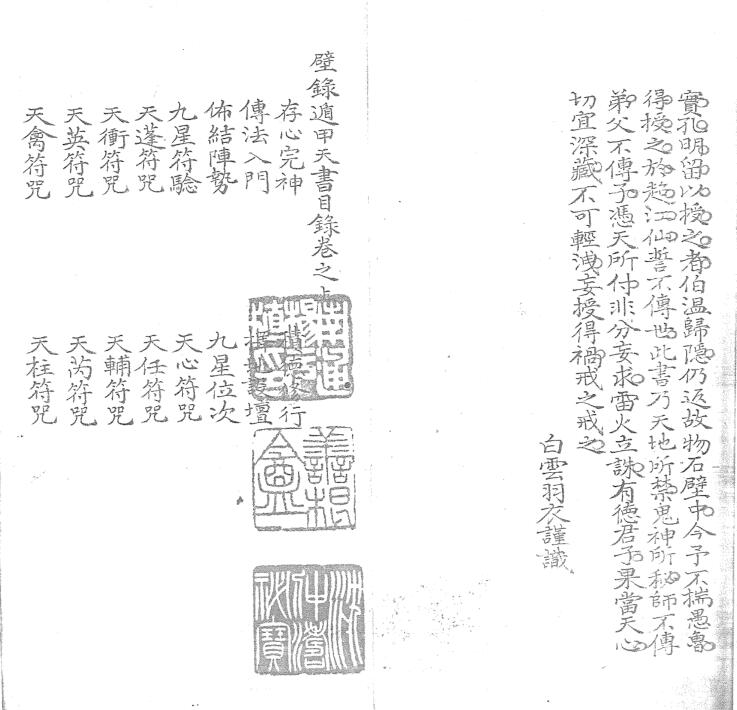 實孔明留以授之者伯溫歸隱仍返故物石壁中今予不揣愚魯
得授之於趙江仙誓不傳也此書乃天地所禁鬼神所秘師不傳
弟父不傳子憑天所付非分妄求雷火立誅有德君子果當天心
切宜深藏不可輕洩妄授得禍戒之戒之
白雲羽衣謹識
壁錄遁甲天書目錄卷之上
存心完神 積德修行
傳法入門 壇
佈結陣勢 九星位次
九星符驗 天心符咒
天蓬符咒 天任符咒
天衝符咒 天輔符咒
天英符咒 天芮符咒
天禽符咒 天柱符咒